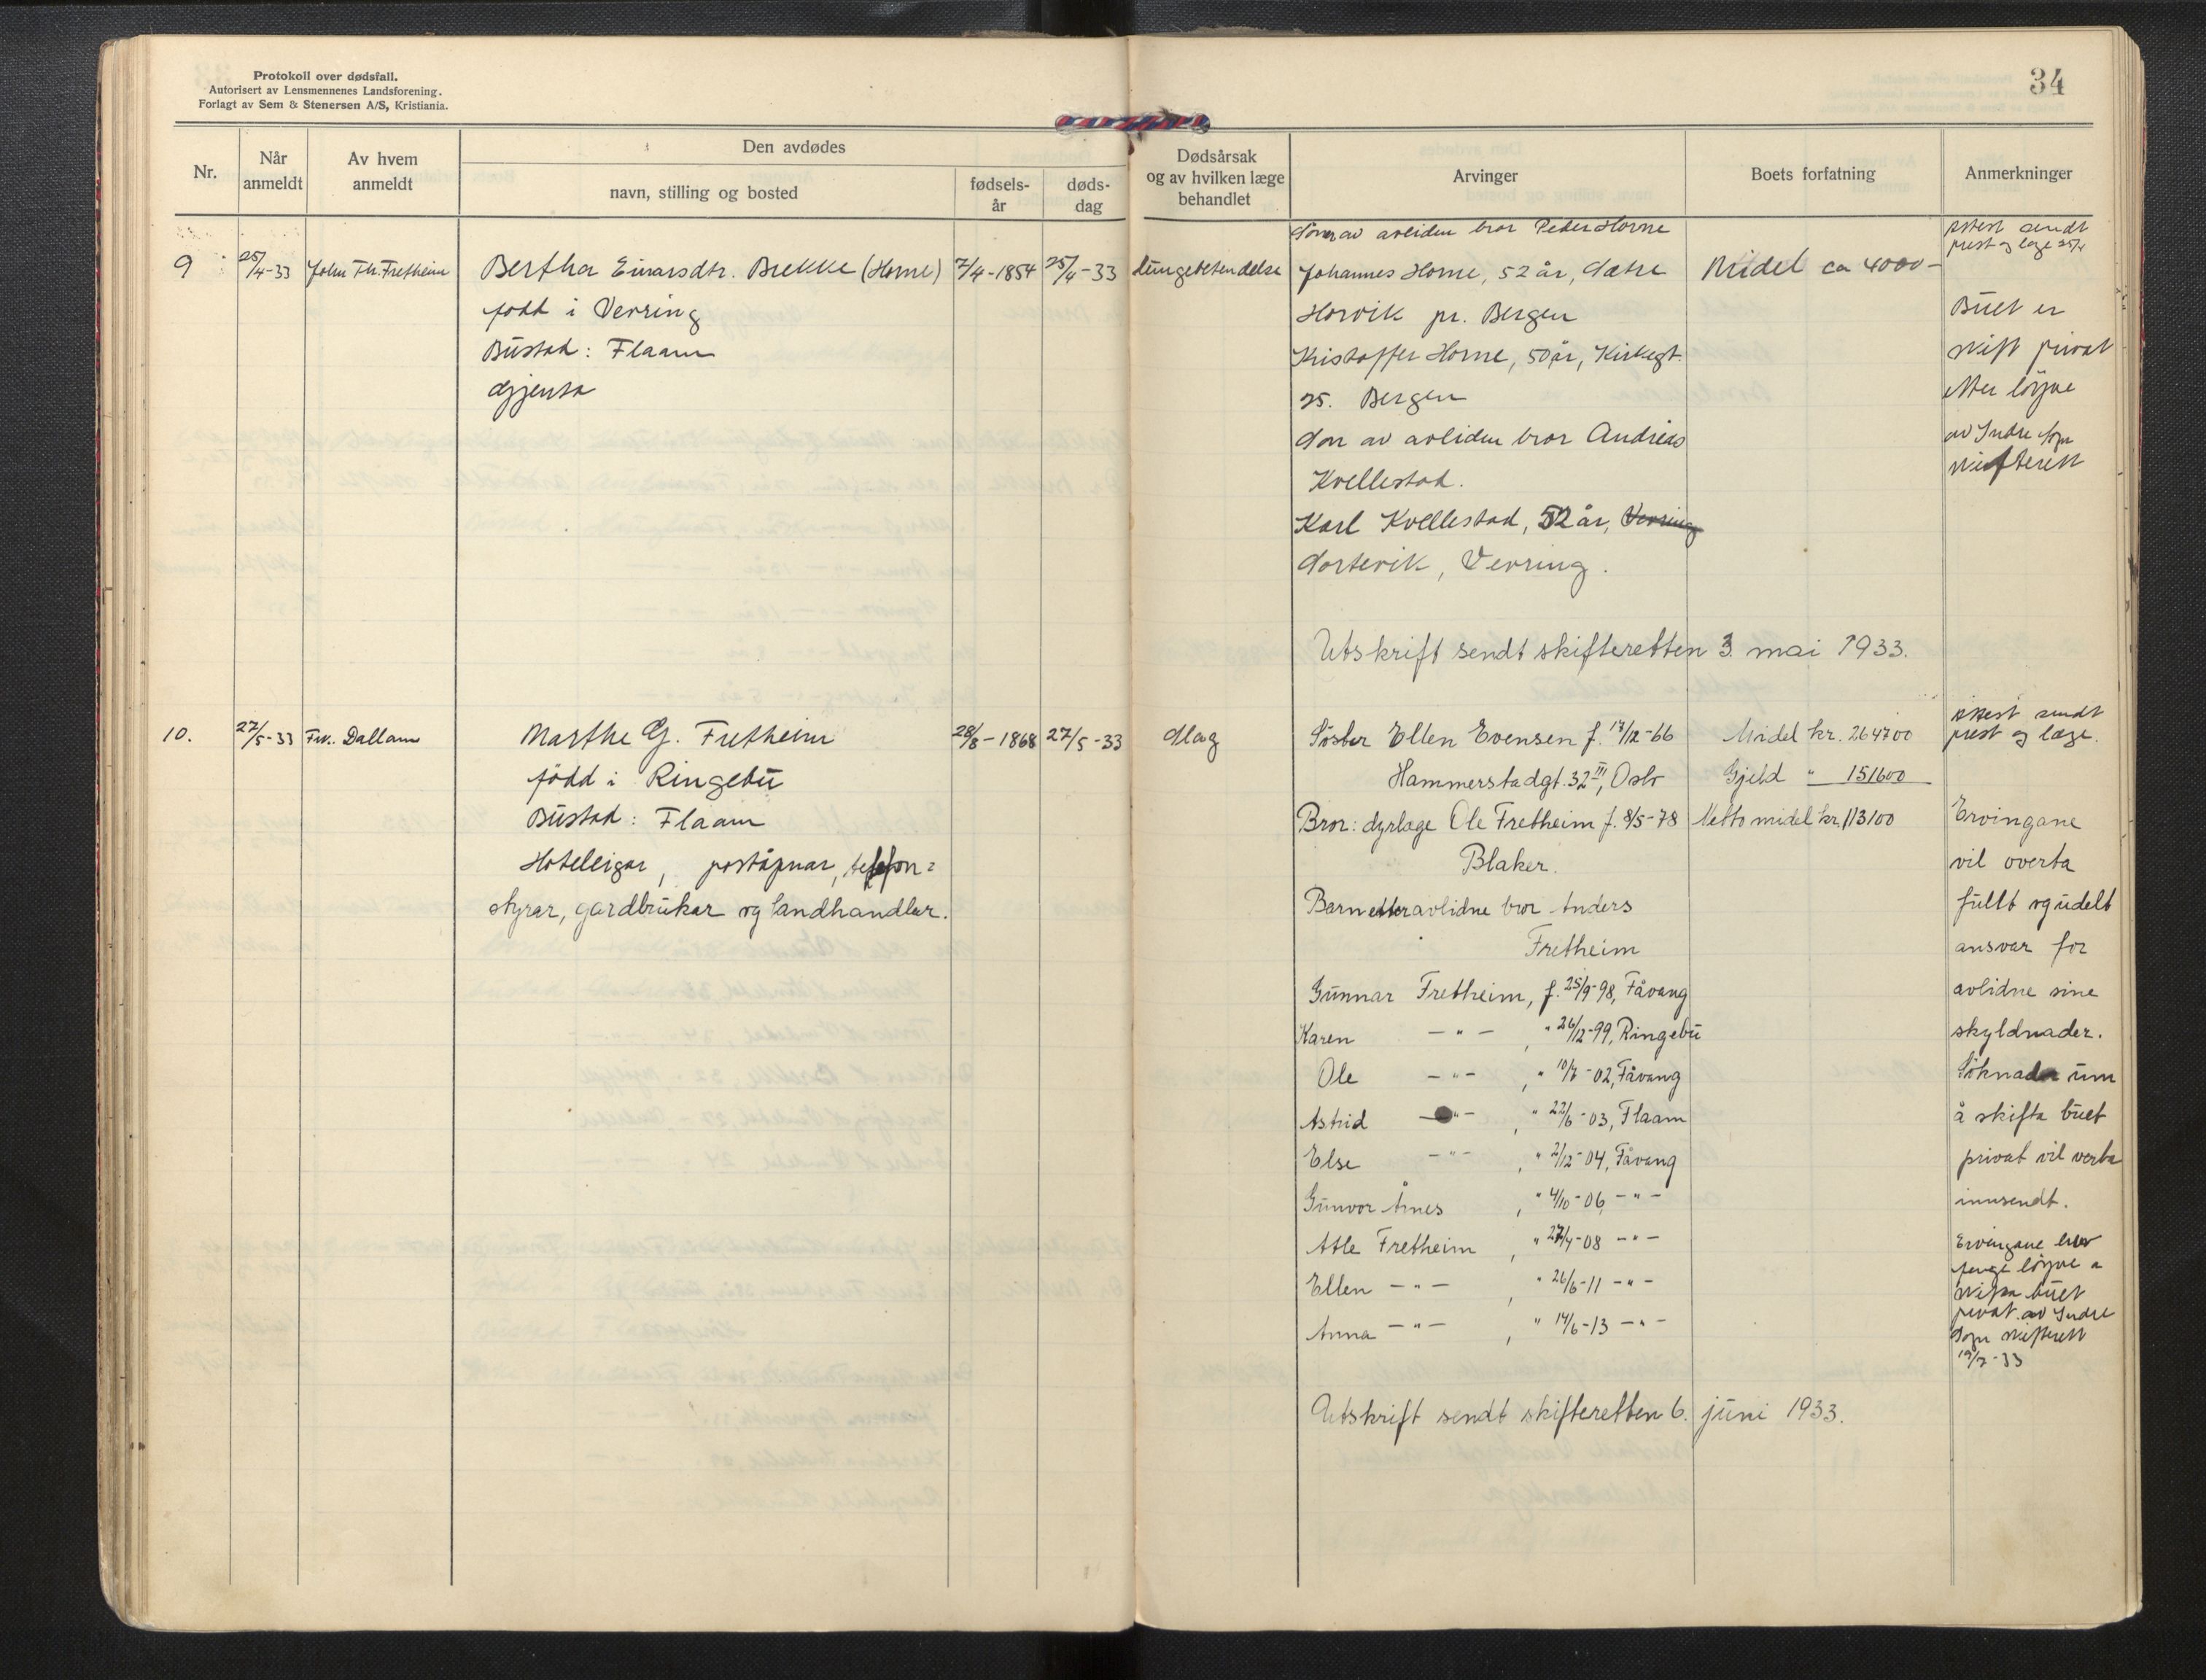 Protokoll over dødsfall.
Autorisert av Lensmennenes Landsforening.
Forlagt av Sem & Stenersen A/S, Kristiania.
34
Nr.
Når anmeldt
Av hvem anmeldt
Den avdødes
navn, stilling og bosted
fødsels-år
døds-dag
Dødsårsak og av hvilken læge behandlet
Arvinger
Boets forfatning
Anmerkninger
9
25/4-33
John Th. Fretheim
Bertha Eivarsdtr. Brekke (Horne)
født i Vevring
Bustad: Flaam
Gjenta
7/4-1854
25/4-33
Lungebetendelse
Søner av avliden bror Peder Horne
Johannes Horne, 52 år, Sætre
Horvik pr. Bergen
Kristoffer Horne, 50 år, Kirkegt.
25. Bergen
Son av avliden bror Andreas
Kvellestad.
Karl Kvellestad, 52 år, Vevring
Sortevik, Vevring.
Midel ca 4000-
Attest sendt
prest og læge 25/4
Buet er
skift privat
etter løyve
av Indre Sogn
skifterett
Utskrift sendt skifteretten 3. mai 1933.
10.
27/5-33
Frk. Dallam
Marthe G. Fretheim
född i Ringebu
Bustad: Flaam
Hoteleigar, poståpnar, telefon=
styrar, gardbrukar og landhandlar.
28/8-1868
27/5-33
Slag
Söster Ellen Evensen f. 17/12-66
Hammerstadgt. 32 III, Oslo
Bror: dyrlæge Ole Fretheim f. 8/5-78
Blaker.
Barn etter avlidne bror Anders
Fretheim
Gunnar Fretheim, f. 25/9-98, Fåvang
Karen -"- , " 26/12-99, Ringebu
Ole -"- , " 10/7-02, Fåvang
Astrid -"- , " 22/6-03, Flaam
Else -"- , " 2/12-04, Fåvang
Gunvor Åmes , " 4/10-06, -"-
Atle Fretheim , " 27/4-08 -"-
Ellen -"- , " 26/6-11 -"-
Anna -"- , " 14/6-13 -"-
Midel kr. 264700
Gjeld " 151600
Netto midel kr. 113100
Attest sendt
prest og læge.
Ervingane
vil overta
fullt og udelt
ansvar for
avlidne sine
skyldnader.
Söknader um
å skifta buet
privat vil verta
innsendt.
Ervingane hev
fenge løyve a
skifta buet
privat av Indre
Sogn skifterett
19/7-33
Utskrift sendt skifteretten 6. juni 1933.